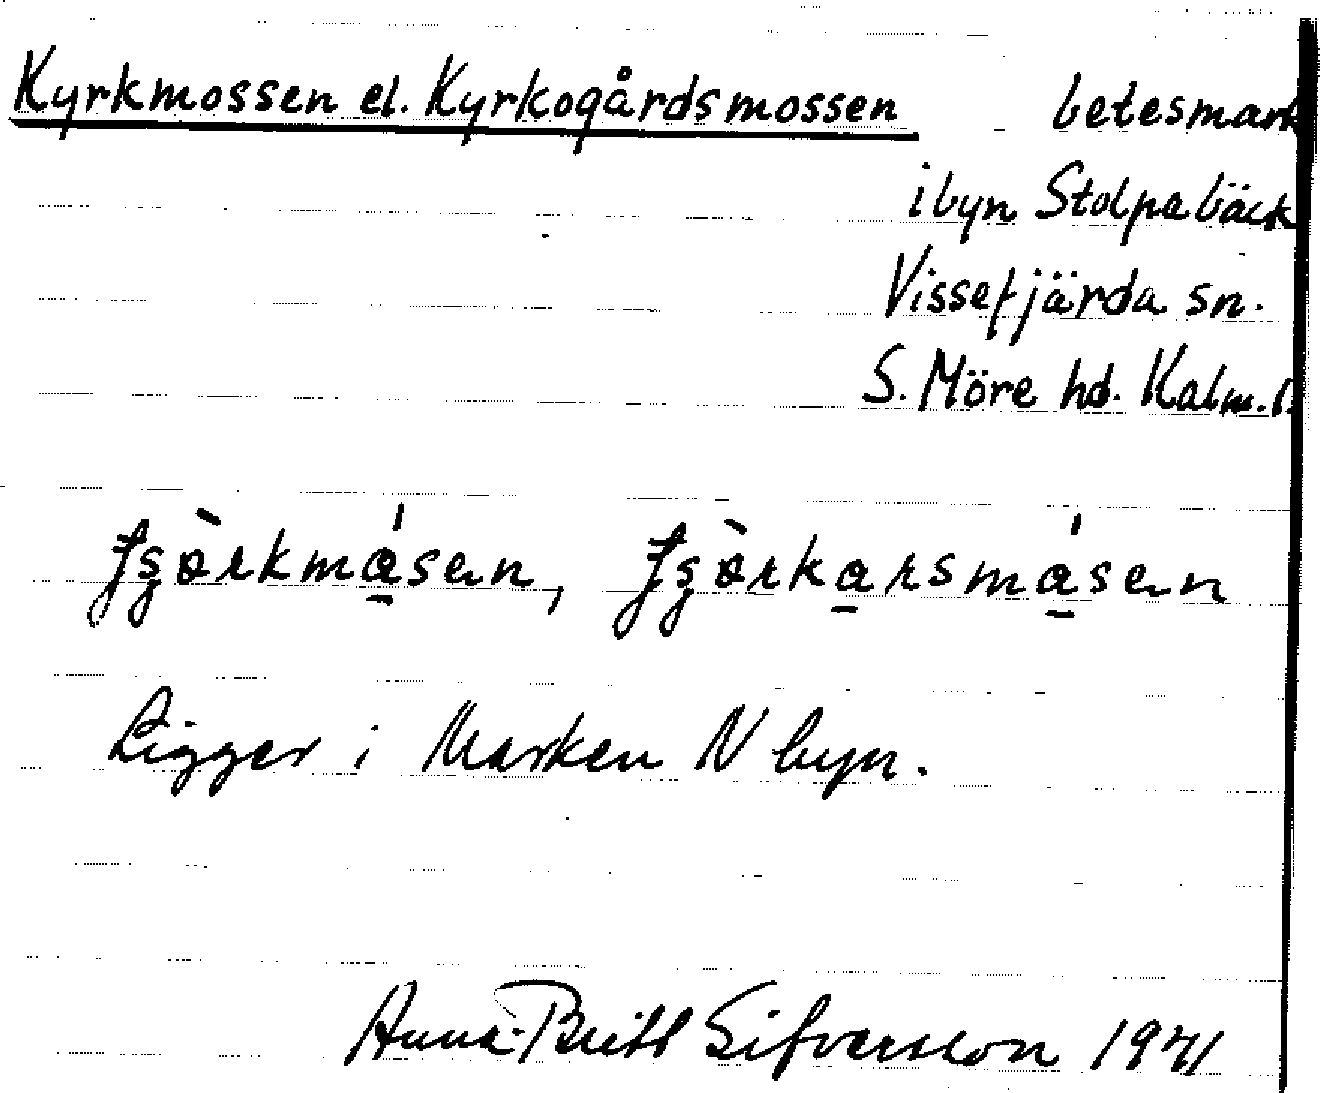 Kyrkmossen el. Kyrkogårdsmossen betesmark
i byn Stolpabäck
Vissefjärda sn.
S. Möre hd. Kalm. l.
Ligger i Marken N byn.
Anna-Britt Sifversson 1941